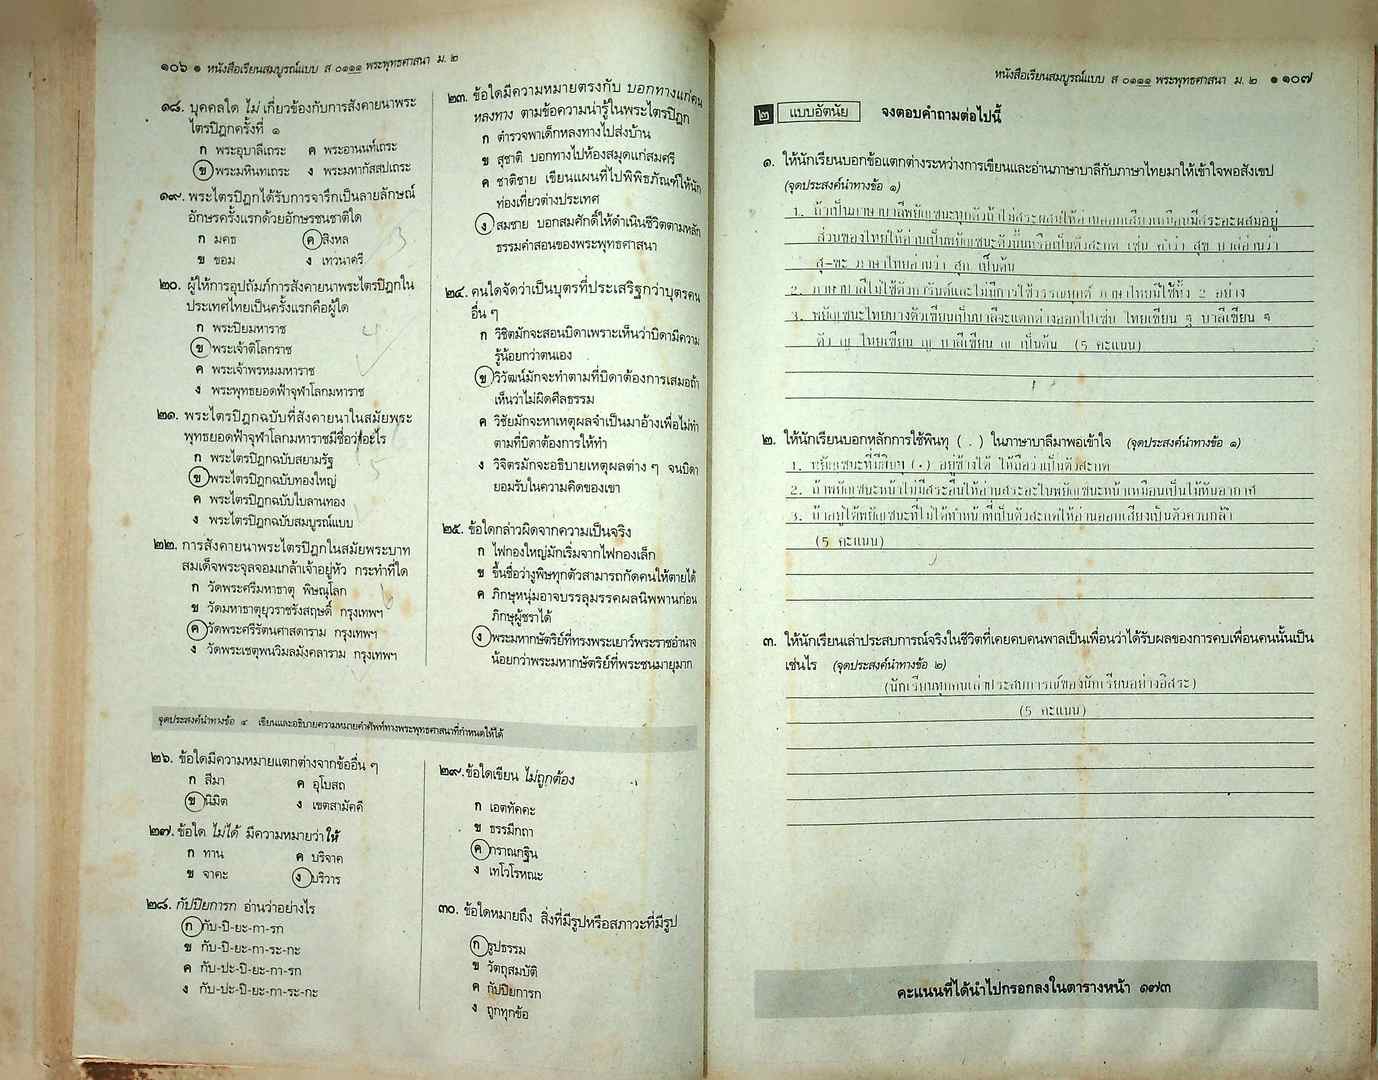 ๑๐๖ ● หนังสือเรียนสมบูรณ์แบบ ส ๐๑๑๑ พระพุทธศาสนา ม. ๒
๑๘. บุคคลใด ไม่ เกี่ยวข้องกับการสังคายนาพระ
ไตรปิฎกครั้งที่ ๑
ก พระอุบาลีเถระ ค พระอานนท์เถระ
ข พระมหินทเถระ ง พระมหากัสสปเถระ
๑๙. พระไตรปิฎกได้รับการจารึกเป็นลายลักษณ์
อักษรครั้งแรกด้วยอักษรชนชาติใด
ก มคธ ค สิงหล
ข ขอม ง เทวนาครี
๒๐. ผู้ให้การอุปถัมภ์การสังคายนาพระไตรปิฎกใน
ประเทศไทยเป็นครั้งแรกคือผู้ใด
ก พระปิยมหาราช
ข พระเจ้าติโลกราช
ค พระเจ้าพรหมมหาราช
ง พระพุทธยอดฟ้าจุฬาโลกมหาราช
๒๑. พระไตรปิฎกฉบับที่สังคายนาในสมัยพระ
พุทธยอดฟ้าจุฬาโลกมหาราชมีชื่อว่าอะไร
ก พระไตรปิฎกฉบับสยามรัฐ
ข พระไตรปิฎกฉบับทองใหญ่
ค พระไตรปิฎกฉบับใบลานทอง
ง พระไตรปิฎกฉบับสมบูรณ์แบบ
๒๒. การสังคายนาพระไตรปิฎกในสมัยพระบาท
สมเด็จพระจุลจอมเกล้าเจ้าอยู่หัว กระทำที่ใด
ก วัดพระศรีมหาธาตุ พิษณุโลก
ข วัดมหาธาตุยุวราชรังสฤษดิ์ กรุงเทพฯ
ค วัดพระศรีรัตนศาสดาราม กรุงเทพฯ
ง วัดพระเชตุพนวิมลมังคลาราม กรุงเทพฯ
๒๓. ข้อใดมีความหมายตรงกับ บอกทางแก่คน
หลงทาง ตามข้อความน่ารู้ในพระไตรปิฎก
ก ตำรวจพาเด็กหลงทางไปส่งบ้าน
ข สุชาติ บอกทางไปห้องสมุดแก่สมศรี
ค ชาติชาย เขียนแผนที่ไปพิพิธภัณฑ์ให้นัก
ท่องเที่ยวต่างประเทศ
ง สมชาย บอกสมศักดิ์ให้ดำเนินชีวิตตามหลัก
ธรรมคำสอนของพระพุทธศาสนา
๒๔. คนใดจัดว่าเป็นบุตรที่ประเสริฐกว่าบุตรคน
อื่น ๆ
ก วิชิตมักจะสอนบิดาเพราะเห็นว่าบิดามีความ
รู้น้อยกว่าตนเอง
ข วิวัฒน์มักจะทำตามที่บิดาต้องการเสมอถ้า
เห็นว่าไม่ผิดศีลธรรม
ค วิชัยมักจะหาเหตุผลจำเป็นมาอ้างเพื่อไม่ทำ
ตามที่บิดาต้องการให้ทำ
ง วิจิตรมักจะอธิบายเหตุผลต่าง ๆ จนบิดา
ยอมรับในความคิดของเขา
๒๕. ข้อใดกล่าวผิดจากความเป็นจริง
ก ไฟกองใหญ่มักเริ่มจากไฟกองเล็ก
ข ขึ้นชื่อว่างูพิษทุกตัวสามารถกัดคนให้ตายได้
ค ภิกษุหนุ่มอาจบรรลุมรรคผลนิพพานก่อน
ภิกษุผู้ชราได้
ง พระมหากษัตริย์ที่ทรงพระเยาว์พระราชอำนาจ
น้อยกว่าพระมหากษัตริย์ที่พระชนมายุมาก
จุดประสงค์นำทางข้อ ๔ เขียนและอธิบายความหมายคำศัพท์ทางพระพุทธศาสนาที่กำหนดให้ได้
๒๖. ข้อใดมีความหมายแตกต่างจากข้ออื่น ๆ
ก สีมา ค อุโบสถ
ข นิมิต ง เขตสามัคคี
๒๗. ข้อใด ไม่ได้ มีความหมายว่า ให้
ก ทาน ค บริจาค
ข จาคะ ง บริวาร
๒๘. กัปปิยการก อ่านว่าอย่างไร
ก กับ-ปิ-ยะ-กา-รก
ข กับ-ปิ-ยะ-กา-ระ-กะ
ค กับ-ปะ-ปิ-ยะ-กา-รก
ง กับ-ปะ-ปิ-ยะ-กา-ระ-กะ
๒๙. ข้อใดเขียน ไม่ถูกต้อง
ก เอตทัคคะ
ข ธรรมีกถา
ค กราณกฐิน
ง เทโวโรหณะ
๓๐. ข้อใดหมายถึง สิ่งที่มีรูปหรือสภาวะที่มีรูป
ก รูปธรรม
ข วัตถุสมบัติ
ค กัปปิยการก
ง ถูกทุกข้อ
หนังสือเรียนสมบูรณ์แบบ ส ๐๑๑๑ พระพุทธศาสนา ม. ๒ ● ๑๐๗
๒ แบบอัตนัย จงตอบคำถามต่อไปนี้
๑. ให้นักเรียนบอกข้อแตกต่างระหว่างการเขียนและอ่านภาษาบาลีกับภาษาไทยมาให้เข้าใจพอสังเขป
(จุดประสงค์นำทางข้อ ๑)
1. ถ้าเป็นภาษาบาลีพยัญชนะทุกตัวถ้าไม่สระผสมให้อ่านออกเสียงเหมือนมีสระอะผสมอยู่
ส่วนของไทยให้อ่านเป็นพยัญชนะตัวนั้นหรือเป็นตัวสะกด เช่น คำว่า สุข บาลีอ่านว่า
สุ-ขะ ภาษาไทยอ่านว่า สุก เป็นต้น
2. ภาษาบาลีไม่ใช้ตัวการันต์และไม่มีการใช้วรรณยุกต์ ภาษาไทยมีใช้ทั้ง 2 อย่าง
3. พยัญชนะไทยบางตัวเขียนเป็นบาลีจะแตกต่างออกไปเช่น ไทยเขียน ฐ บาลีเขียน
ตัว ญ ไทยเขียน ญ บาลีเขียน เป็นต้น (5 คะแนน)
๒. ให้นักเรียนบอกหลักการใช้พินทุ ( . ) ในภาษาบาลีมาพอเข้าใจ (จุดประสงค์นำทางข้อ ๑)
1. พยัญชนะที่มีพินทุ (.) อยู่ข้างใต้ ให้ถือว่าเป็นตัวสะกด
2. ถ้าพยัญชนะหน้าไม่มีสระอื่นให้อ่านสระอะในพยัญชนะหน้าเหมือนเป็นไม้หันอากาศ
3. ถ้าอยู่ใต้พยัญชนะที่ไม่ได้ทำหน้าที่เป็นตัวสะกดให้อ่านออกเสียงเป็นตัวควบกล้ำ
(5 คะแนน)
๓. ให้นักเรียนเล่าประสบการณ์จริงในชีวิตที่เคยคบคนพาลเป็นเพื่อนว่าได้รับผลของการคบเพื่อนคนนั้นเป็น
เช่นไร (จุดประสงค์นำทางข้อ ๒)
(นักเรียนทุกคนเล่าประสบการณ์ของนักเรียนอย่างอิสระ)
(5 คะแนน)
คะแนนที่ได้นำไปกรอกลงในตารางหน้า ๑๗๓